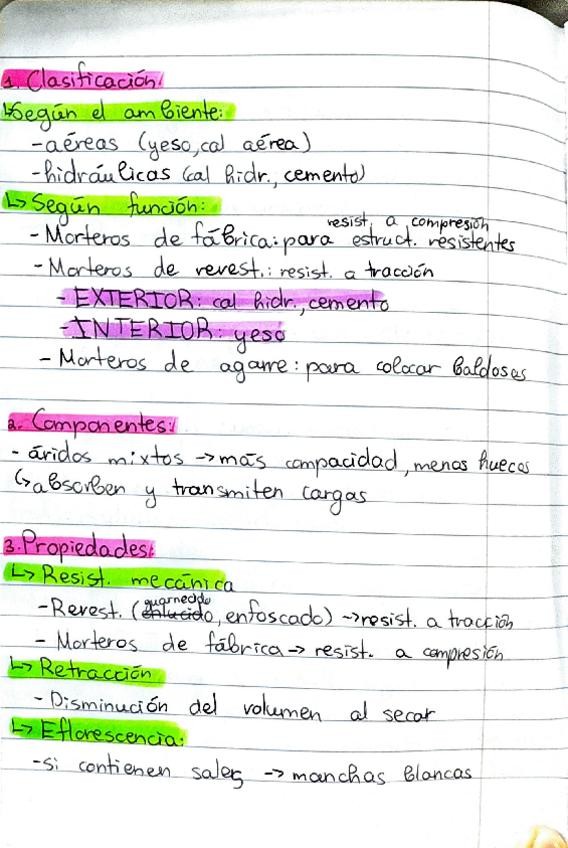 1. Clasificación:
↳Según el ambiente:
-aéreas (yeso, cal aérea)
-hidráulicas (cal hidr., cemento)
↳ Según función:
resist. a compresión
- Morteros de fábrica: para estruct. resistentes
- Morteros de revest.: resist. a tracción
- EXTERIOR: cal hidr., cemento
- INTERIOR: yeso
- Morteros de agarre: para colocar baldosas
2. Componentes:
- áridos mixtos → más compacidad, menos huecos
↳ absorben y transmiten cargas
3. Propiedades:
↳ Resist. mecánica
guarnecido
- Revest. (enlucido, enfoscado) → resist. a tracción
- Morteros de fábrica → resist. a compresión
↳ Retracción
- Disminución del volumen al secar
↳ Eflorescencia:
-si contienen sales → manchas blancas